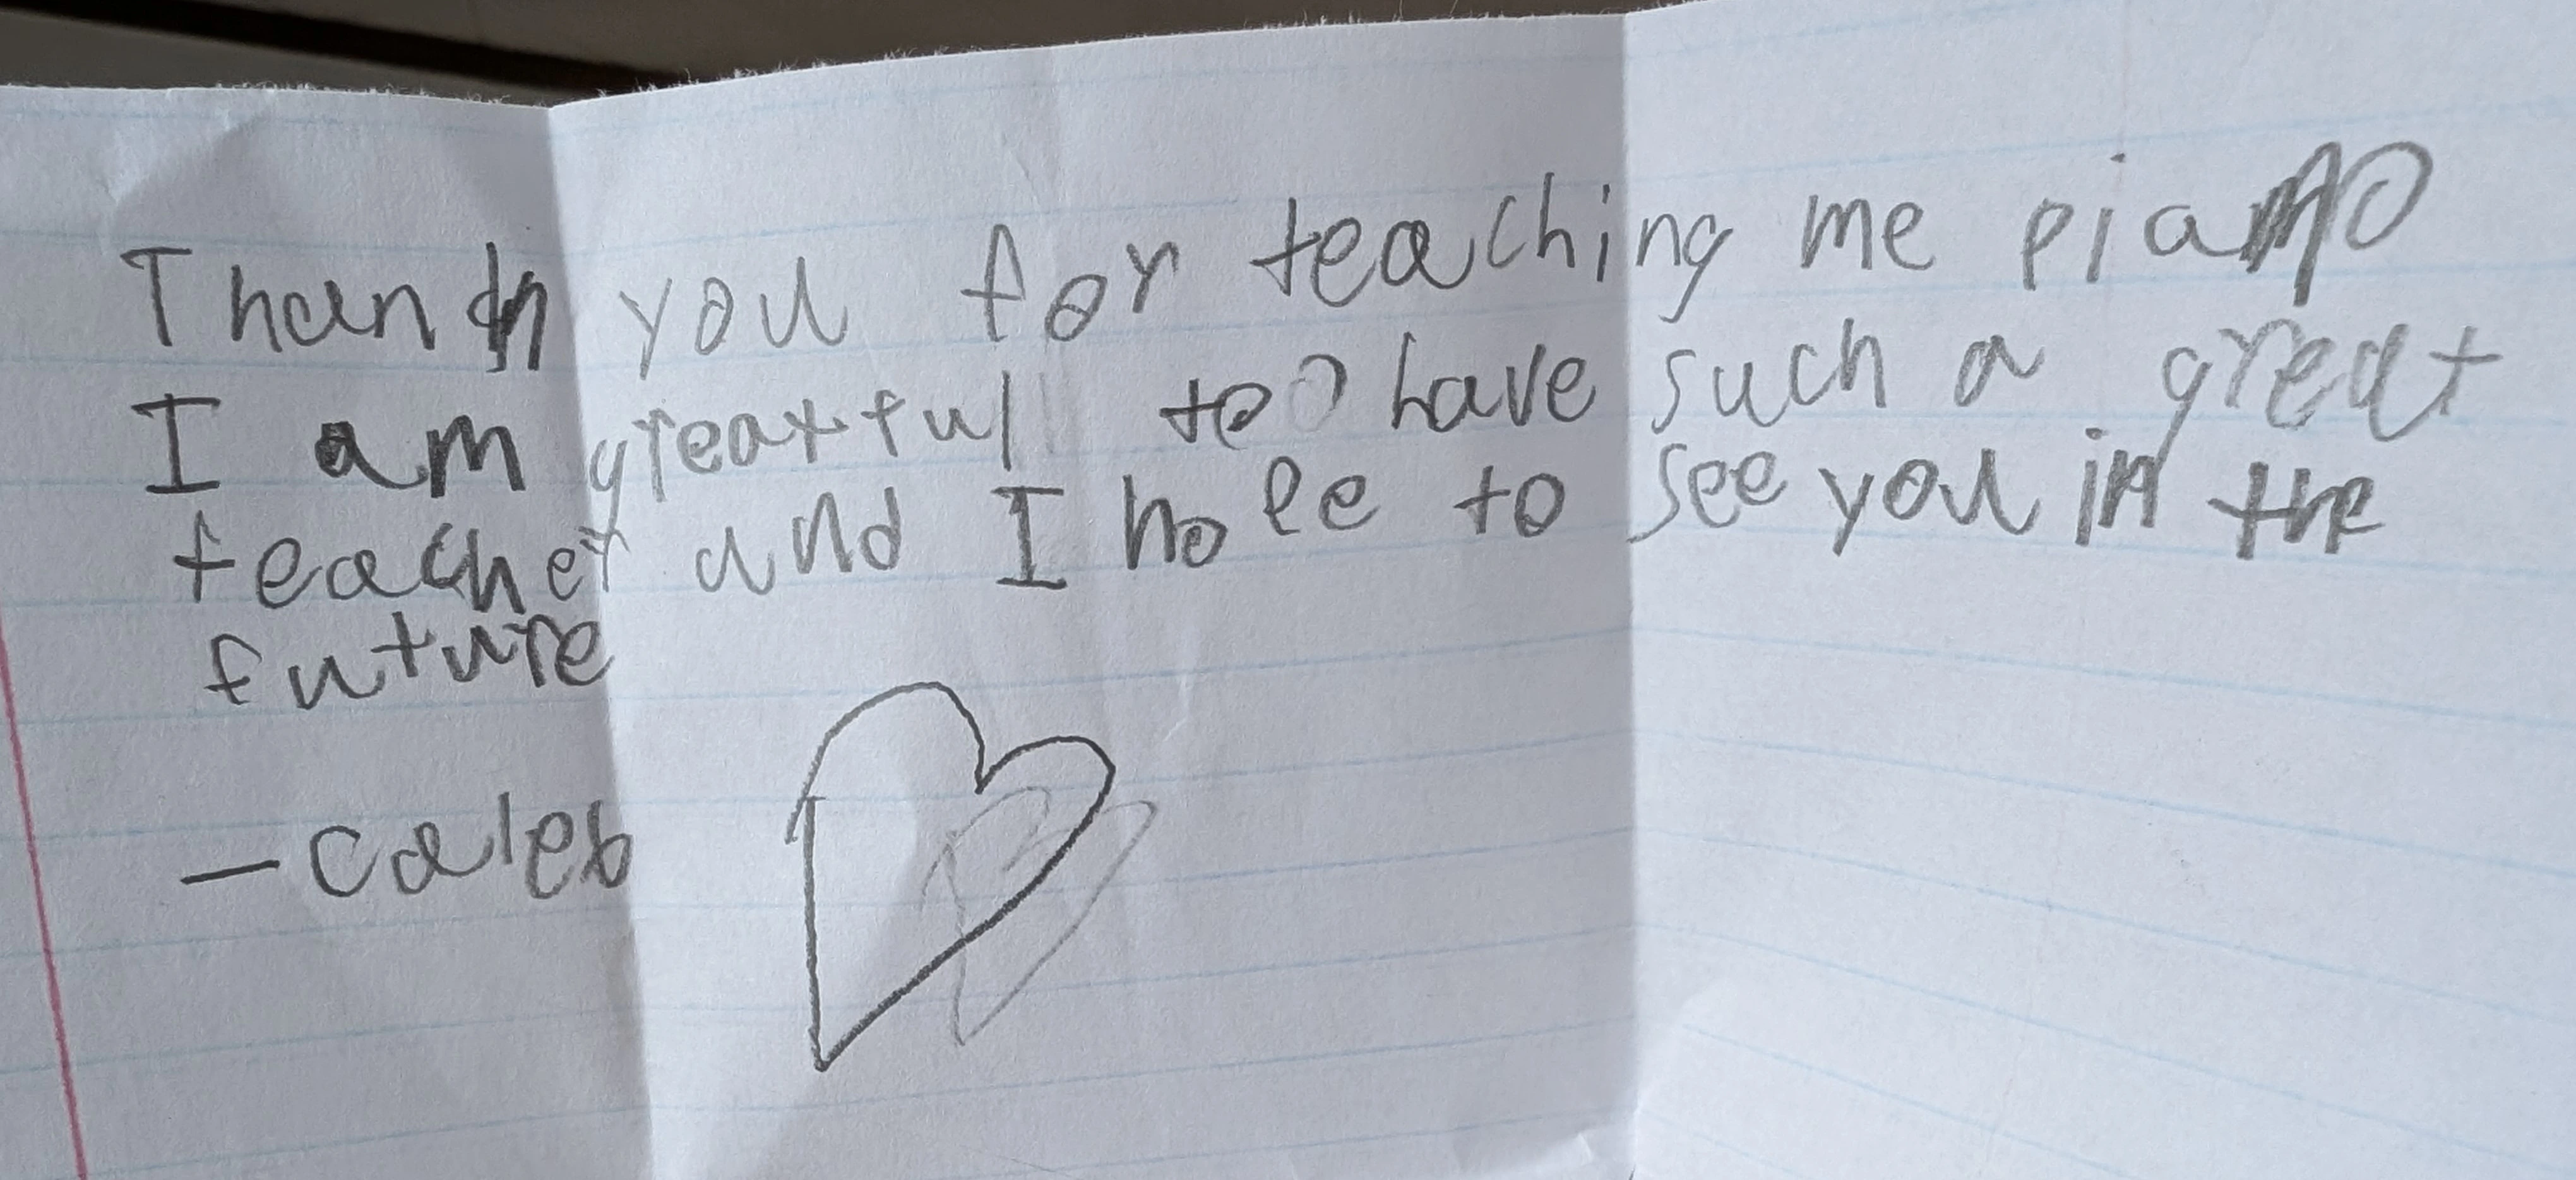 Thank you for teaching me piano
I am greatful to have such a great
teacher and I hope to see you in the
future
- caleb